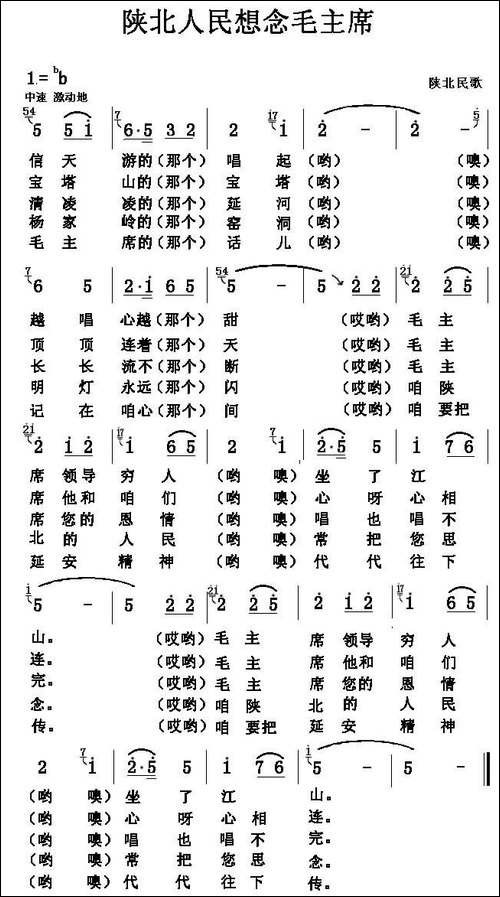 陕北人民想念毛主席
1=ᵇb
中速 激动地
陕北民歌
信天游的(那个)唱起(哟)(噢)
宝塔山的(那个)宝塔(哟)(噢)
清凌凌的(那个)延河(哟)(噢)
杨家岭的(那个)窑洞(哟)(噢)
毛主席的(那个)话儿(哟)(噢)
越唱心越(那个)甜(哎哟)毛主
顶顶连着(那个)天(哎哟)毛主
长长流不(那个)断(哎哟)毛主
明灯永远(那个)闪(哎哟)咱陕
记在咱心(那个)间(哎哟)咱要把
席领导穷人(哟噢)坐了江
席他和咱们(哟噢)心呀心相
席您的恩情(哟噢)唱也唱不
北的人民(哟噢)常把您思
延安精神(哟噢)代代往下
山。(哎哟)毛主席领导穷人
连。(哎哟)毛主席他和咱们
完。(哎哟)毛主席您的恩情
念。(哎哟)咱陕北的人民
传。(哎哟)咱要把延安精神
(哟噢)坐了江山。
(哟噢)心呀心相连。
(哟噢)唱也唱不完。
(哟噢)常把您思念。
(哟噢)代代往下传。